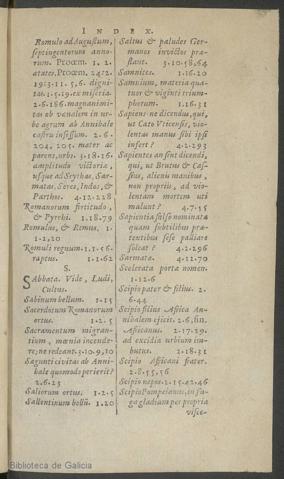 INDEX.
Romulo ad Augustum,
septingentorum anno-
rum. Proœm. 1. 2.
ætates. Proœm. 24. 2.
19: 3. 11. 5, 6. digni-
tas. 1. 5. 19. ex miseria.
2. 6. 186. magnanimi-
tas ob venalem in ur-
be agrum ab Annibale
castris insessum. 2. 6.
204, 205. mater ac
parens, urbs. 3. 18. 16.
amplitudo victoria,
usque ad Scythas, Sar-
matas, Seres, Indos, &
Parthos. 4. 12. 228
Romanorum fortitudo,
& Pyrrhi. 1. 18. 79
Romulus, & Remus. 1.
1-2, 20
Romuli regnum. 1. 1. 56.
raptus. 1. 1. 62
S.
SAbbata. Vide, Ludi,
Cultus.
Sabinum bellum. 1. 15
Sacerdotum Romanorum
ortus. 1. 2. 5
Sacramentum migran-
tium, mœnia incende-
re; ne redeant. 3. 10. 9, 10
Sagunti civitas ab Anni-
bale quomodo perierit?
2. 6. 23
Saliorum ortus. 1. 2. 5
Sallentinum bellũ. 1. 20
Saltus & paludes Ger-
manos invictos præ-
stant. 3. 10. 58, 64
Samnites. 1. 16. 20
Samnium, materia qua-
tuor & viginti trium-
phorum. 1. 16. 31
Sapiens ne dicendus, qui,
ut Cato Uticensis, vio-
lentas manus sibi ipsi
infert? 4. 2. 293
Sapientes an sint dicendi,
qui, ut Brutus & Cas-
sius, alienis manibus,
non propriis, ad vio-
lentam mortem uti
malunt? 4. 7. 55
Sapientia falso nominata
quam subtilibus præ-
tentibus sese palliare
soleat? 4. 2. 296
Sarmatæ. 4. 12. 70
Scelerata porta nomen.
1. 12. 6
Scipio pater & filius. 2.
6. 44
Scipio filius Africa An-
nibalem ejicit. 2. 6, fin.
Africanus. 2. 17. 29.
ad excidia urbium im-
butus. 2. 18. 31
Scipio Africani frater.
2. 8. 55, 56
Scipio nepos. 2. 15. 42. 46
Scipio Pompeianus, in fu-
ga gladium per propria
visce-
Biblioteca de Galicia